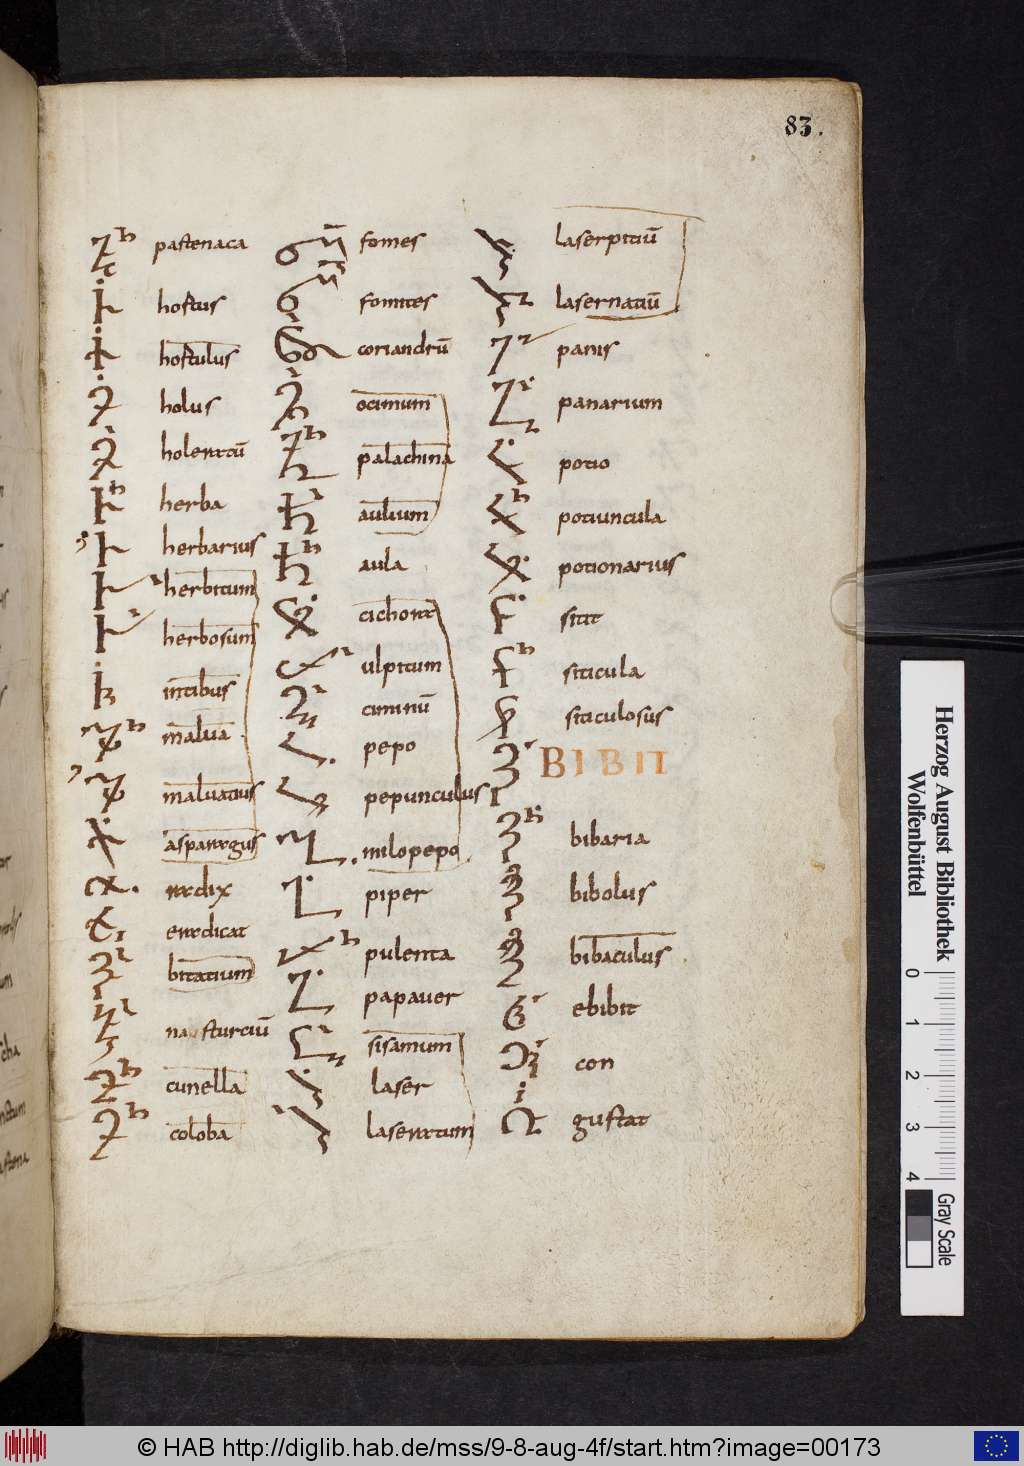 83.
pastenaca
hostus
hostulus
holus
holeratū
herba
herbarius
herbitum
herbosum
intibus
malua
maluatius
asparagus
radix
eradicat
bitatium
nasturciū
cunella
coloba
fomes
fomites
coriandrū
ocimum
palachina
aulium
aula
cichoria
ulpitum
ciminū
pepo
pepunculus
milopepo
piper
pulenta
papauer
sisamum
laser
laseratum
laserpitiū
lasernatiū
panis
panarium
potio
potiuncula
potionarius
sitit
siticula
siticulosus
BIBIT
bibaria
bibolus
bibaculus
ebibit
con
gustat
Herzog August Bibliothek
Wolfenbüttel
0 1 2 3 4
Gray Scale
© HAB http://diglib.hab.de/mss/9-8-aug-4f/start.htm?image=00173